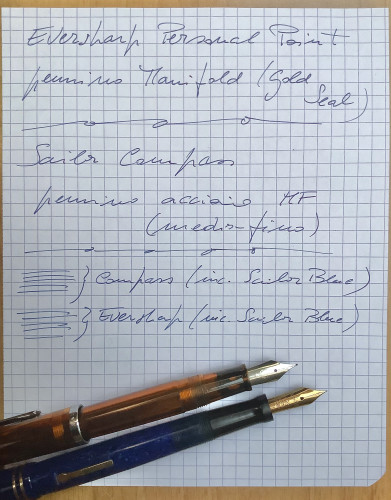 Eversharp Personal Point
pennino Manifold (Gold
Seal)
Sailor Compass
pennino acciaio MF
(medio-fino)
} Compass (inc. Sailor Blue)
} Eversharp (inc. Sailor Blue)